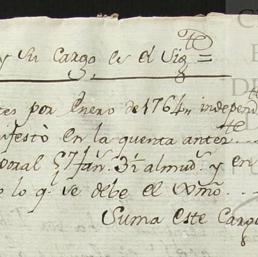 y su Cargo, es el Sig.te =
tes por Enero de 1764,, independ
festò en la quenta anter.te
oral 97 fan.s 3½ almud.s y en
o lo q.e se debe el
Suma este Cargo